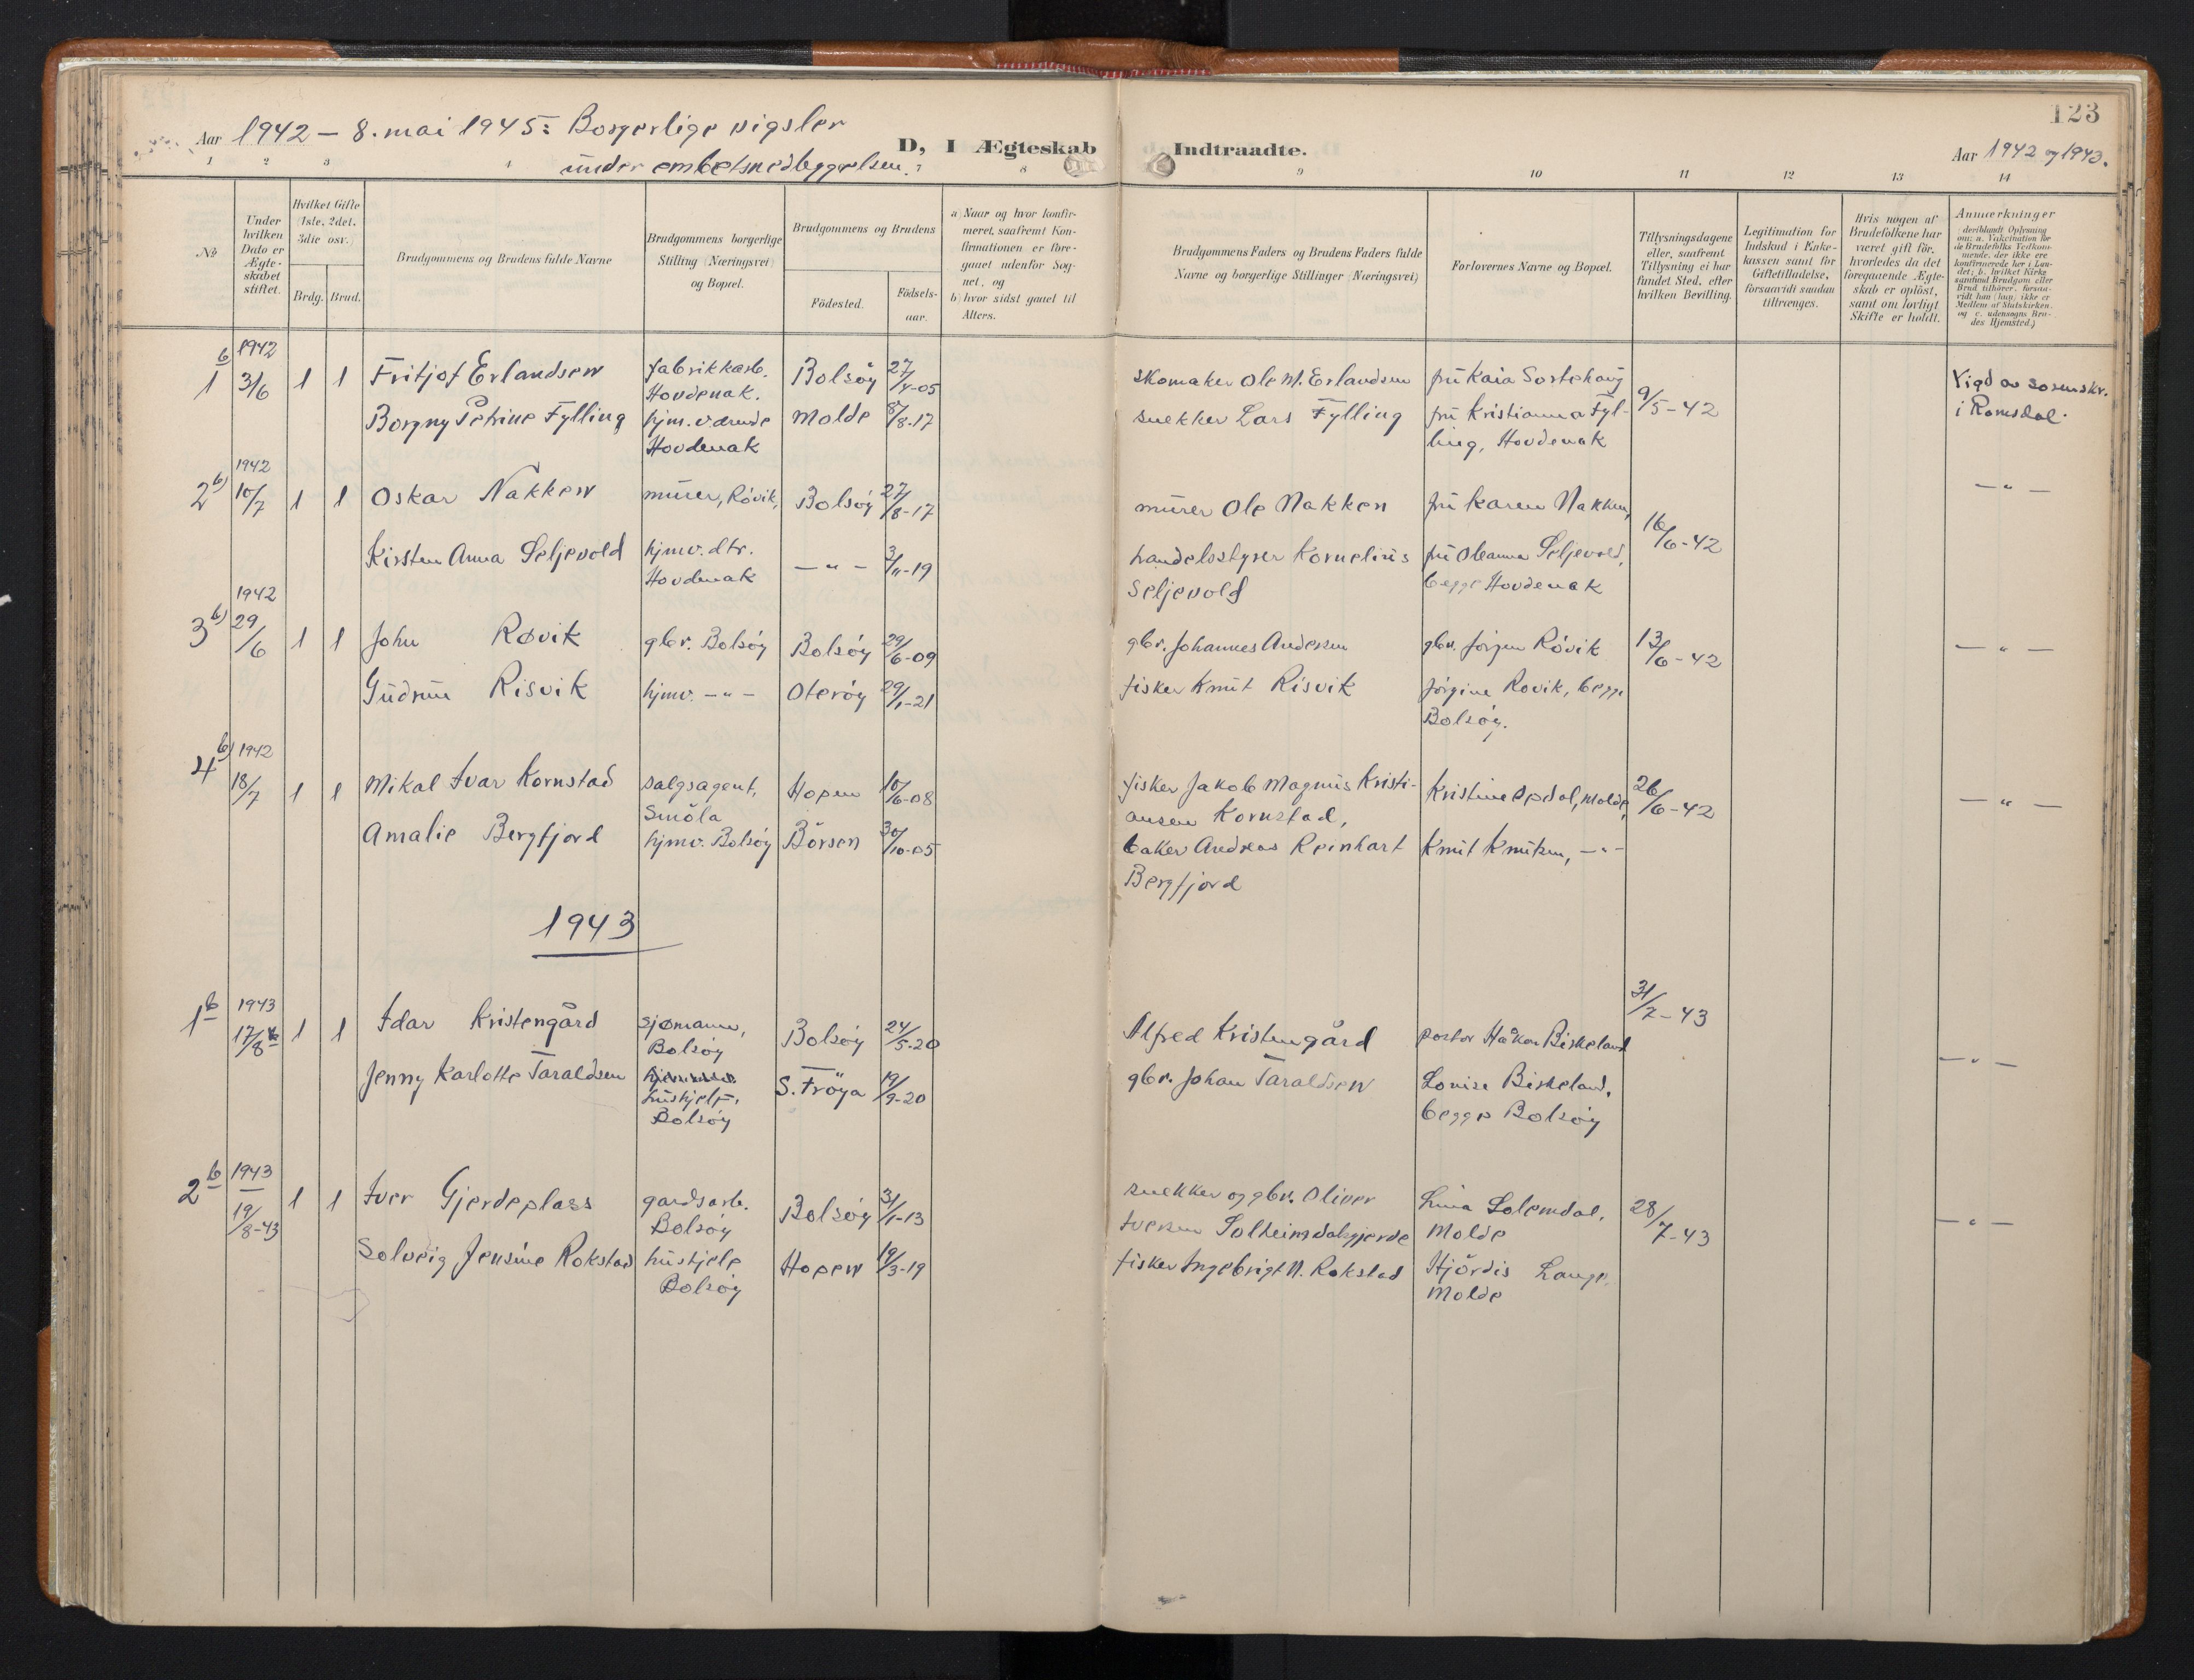 123
Aar 1942 - 8. mai 1945: Borgerlige vigsler
under embetsnedleggelsen.
D, I Ægteskab Indtraadte.
Aar 1942 og 1943.
1 2 3 4 7 8 9 10 11 12 13 14
No
Under hvilken Dato er Ægteskabet stiftet.
Hvilket Gifte (1ste, 2det, 3die osv.)
Brdg. Brud.
Brudgommens og Brudens fulde Navne
Brudgommens borgerlige Stilling (Næringsvei) og Bopæl.
Brudgommens og Brudens
Födested.
Födselsaar.
a) Naar og hvor konfirmeret, saafremt Konfirmationen er foregaaet udenfor Sognet, og
b) hvor sidst gaaet til Alters.
Brudgommens Faders og Brudens Faders fulde Navne og borgerlige Stillinger (Næringsvei)
Forlovernes Navne og Bopæl.
Tillysningsdagene eller, saafremt Tillysning ei har fundet Sted, efter hvilken Bevilling.
Legitimation for Indskud i Enkekassen samt for Giftetilladelse, forsaavidt saadan tiltrænges.
Hvis nogen af Brudefolkene har været gift för, hvorledes da det foregaaende Ægteskab er oplöst, samt om lovligt Skifte er holdt.
Anmærkninger (deriblandt Oplysning om: a. Vakcination for de Brudefolks Vedkommende, der ikke ere konfirmerede her i Landet; b. hvilket Kirkesamfund Brudgom eller Brud tilhörer, forsaavidt han (hun) ikke er Medlem af Statskirken, og c. udensogns Brudes Hjemsted.)
1 b 1942 3/6 1 1 Fritjof Erlandsen fabrikkarb. Hovdenak. Bolsöy 27/4-05 skomaker Ole M. Erlandsen fru Kaia Sortehaug 9/5-42 Vigd av sorenskr. i Romsdal.
Borgny Petrine Fylling hjm. værende Hovdenak Molde 8/8-17 snekker Lars Fylling fru Kristianna Fylling, Hovdenak
2 b) 1942 10/7 1 1 Oskar Nakken murer, Rövik, Bolsöy 27/8-17 murer Ole Nakken fru Karen Nakken, 16/6-42 — " —
Kirsten Anna Seljevold hjmv. dtr. Hovdenak — " — 3/11-19 handelsstyrer Kornelius Seljevold fru Oleanna Seljevold, begge Hovdenak
3 b) 1942 29/6 1 1 John Røvik gbr. Bolsöy Bolsöy 29/6-09 gbr. Johannes Andersen gbr. Jörgen Rövik 13/6-42 — " —
Gudrun Risvik hjmv. — " — Oteröy 29/1-21 fisker Knut Risvik Jörgine Rovik, begge Bolsöy.
4 b) 1942 18/7 1 1 Mikal Ivar Kornstad salgsagent, Smöla Hopen 10/6-08 fisker Jakob Magnus Kristiansen Kornstad, Kristine Opdol, Molde, 26/6-42 — " —
Amalie Bergfjord hjmv. Bolsöy Börsen 30/10-05 baker Andreas Reinhart Bergfjord Knut Knutsen, — " —
1943
1 b 1943 17/8 1 1 Idar Kristengård sjømann, Bolsöy Bolsöy 24/5-20 Alfred Kristengård pastor Håkon Birkeland 31/7-43 — " —
Jenny Karlotte Taraldsen hushjelp, Bolsöy S. Fröya 19/9-20 gbr. Johan Taraldsen Louise Birkeland, begge Bolsöy
2 b 1943 19/8-43 1 1 Iver Gjerdeplass gardsarb. Bolsöy Bolsöy 31/1-13 snekker og gbr. Oliver Iversen Solheimdalsgjerde Lina Solemdal, Molde 28/7-43 — " —
Solveig Jensine Rokstad hushjelp Bolsöy Hopen 19/3-19 fisker Ingebrigt N. Rokstad Hjördis Lange, Molde